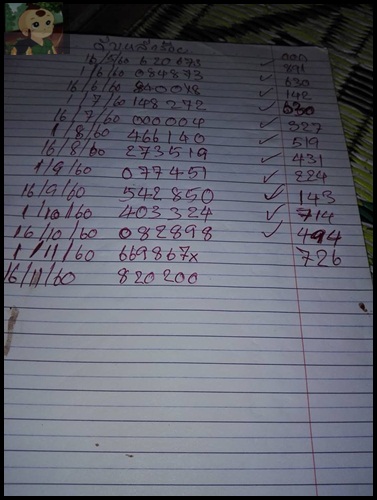 16/5/60 620673
1/6/60 034873 ✓ 891
16/6/60 840048 ✓ 630
1/7/60 148272 ✓ 142
16/7/60 000004 630
1/8/60 466140 ✓ 327
16/8/60 273519 ✓ 519
1/9/60 077451 ✓ 431
16/9/60 542850 ✓ 224
1/10/60 403324 ✓ 143
16/10/60 082898 ✓ 714
1/11/60 669867x ✓ 494
16/11/60 820200 726